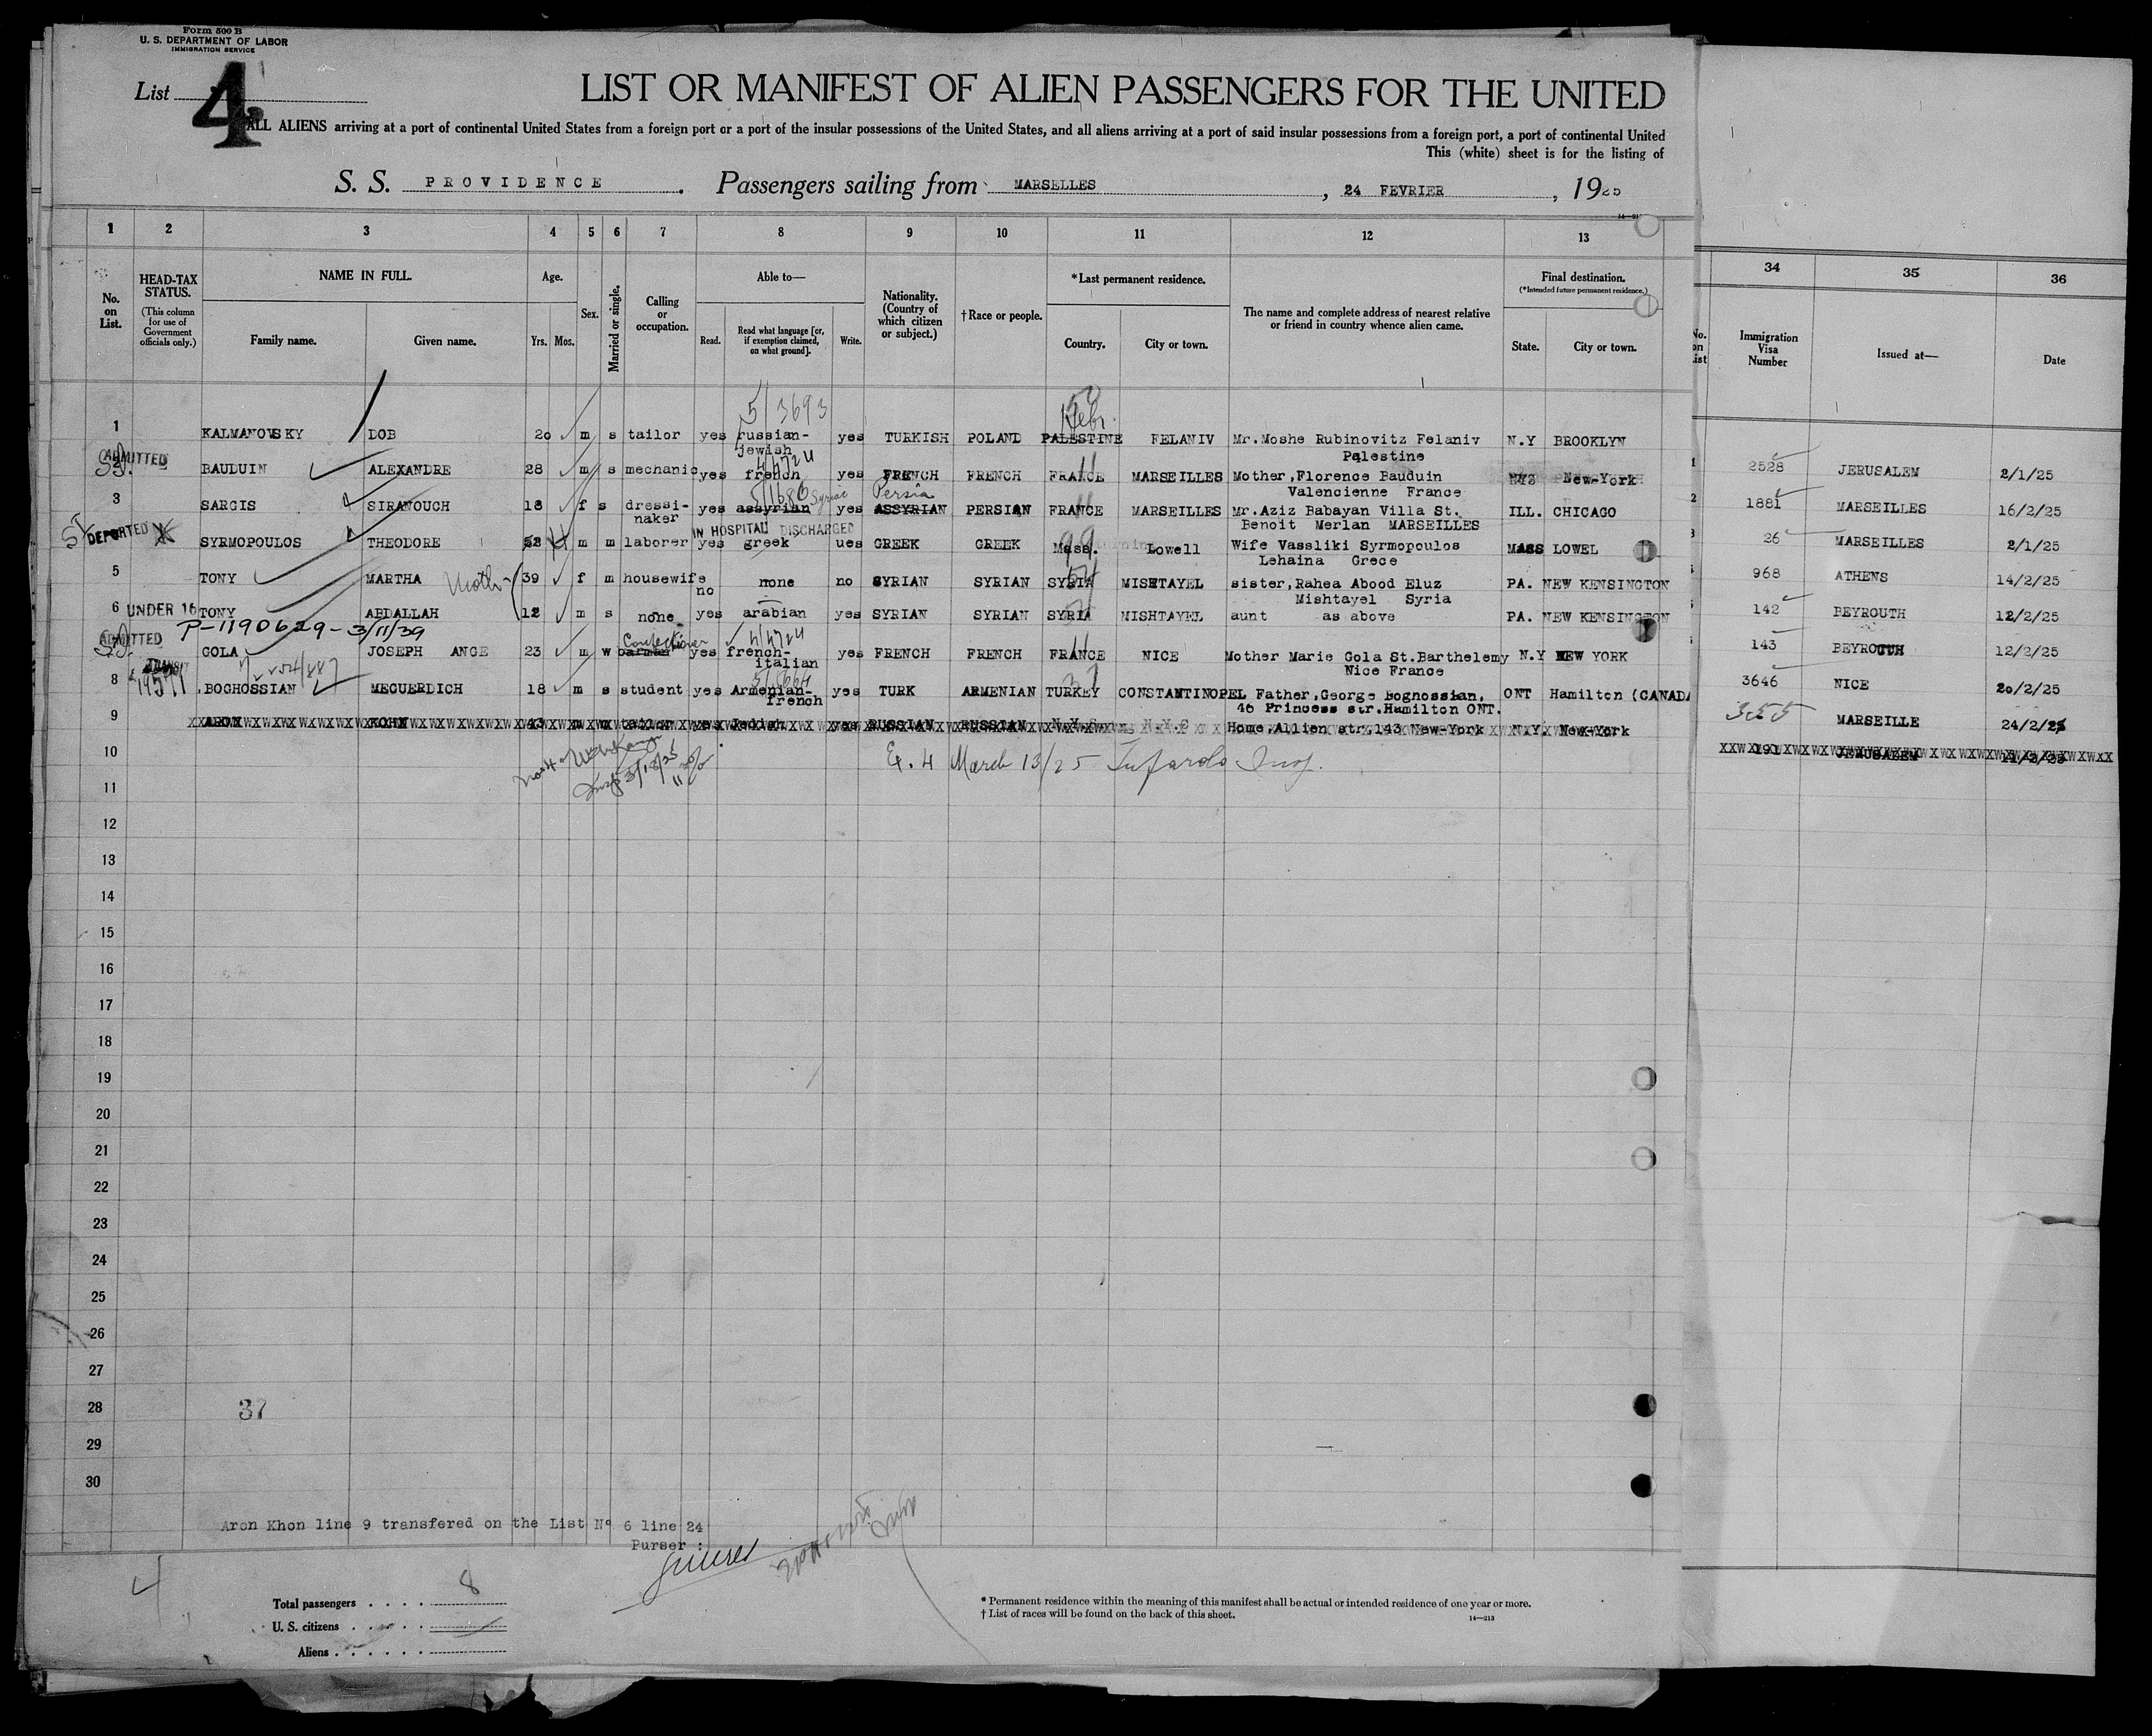 Form 500 B
U. S. DEPARTMENT OF LABOR
IMMIGRATION SERVICE
List 4
LIST OR MANIFEST OF ALIEN PASSENGERS FOR THE UNITED
ALL ALIENS arriving at a port of continental United States from a foreign port or a port of the insular possessions of the United States, and all aliens arriving at a port of said insular possessions from a foreign port, a port of continental United
This (white) sheet is for the listing of
S. S. PROVIDENCE . Passengers sailing from MARSELLES , 24 FEVRIER , 1925
1 2 3 4 5 6 7 8 9 10 11 12 13
34 35 36
No. on List.
HEAD-TAX STATUS.
(This column for use of Government officials only.)
NAME IN FULL.
Family name. Given name.
Age.
Yrs. Mos.
Sex.
Married or single.
Calling or occupation.
Able to—
Read. Read what language [or, if exemption claimed, on what ground]. Write.
Nationality. (Country of which citizen or subject.)
†Race or people.
*Last permanent residence.
Country. City or town.
The name and complete address of nearest relative or friend in country whence alien came.
Final destination.
(*Intended future permanent residence.)
State. City or town.
Immigration Visa Number
Issued at—
Date
5/3693
Hebr.
1 KALMANOWSKY DOB 20 m s tailor yes russian- yes TURKISH POLAND PALESTINE FELANIV Mr.Moshe Rubinovitz Felaniv N.Y BROOKLYN
jewish Palestine
ADMITTED
4/4724
2 BAUDUIN ALEXANDRE 28 m s mechanic yes french yes FRENCH FRENCH FRANCE MARSEILLES Mother,Florence Bauduin New-York
Valencienne France
5/1686 Syriac Persia
3 SARGIS SIRANOUCH 18 f s dressi- yes assyrian yes ASSYRIAN PERSIAN FRANCE MARSEILLES Mr.Aziz Babayan Villa St. ILL. CHICAGO
naker Benoit Merlan MARSEILLES
DEPORTED IN HOSPITAL DISCHARGED
SYRMOPOULOS THEODORE 52 m m laborer yes greek ues GREEK GREEK Mass. Lowell Wife Vassliki Syrmopoulos MASS LOWEL
Lehaina Grece
5 TONY MARTHA Moth 39 f m housewife none no SYRIAN SYRIAN SYRIA MISHTAYEL sister,Rahea Abood Eluz PA. NEW KENSINGTON
no Mishtayel Syria
6 UNDER 16 TONY ABDALLAH 12 m s none yes arabian yes SYRIAN SYRIAN SYRIA MISHTAYEL aunt as above PA. NEW KENSINGTON
P-1190629-3/11/39
ADMITTED
Confectioner 4/4724
GOLA JOSEPH ANGE 23 m w barman yes french- yes FRENCH FRENCH FRANCE NICE Mother Marie Gola St.Barthelemy N.Y NEW YORK
italian Nice France
5/8664
8 BOGHOSSIAN MEGUERDICH 18 m s student yes Armenian- yes TURK ARMENIAN TURKEY CONSTANTINOPEL Father,George Bognossian, ONT Hamilton (CANADA
french 46 Princess str.Hamilton ONT.
9 ARON KOHN 43 m tailor yes Jeddish yes RUSSIAN RUSSIAN N.Y.C N.Y.C Home,Allien str,143 New-York N.Y. New-York
10 E. 4 March 13/25
11
12
13
14
15
16
17
18
19
20
21
22
23
24
25
26
27
28 37
29
30
1 2528 JERUSALEM 2/1/25
2 1881 MARSEILLES 16/2/25
3 26 MARSEILLES 2/1/25
968 ATHENS 14/2/25
142 BEYROUTH 12/2/25
143 BEYROUTH 12/2/25
3646 NICE 20/2/25
355 MARSEILLE 24/2/25
191 JERUSALEM 11/2/25
Aron Khon line 9 transfered on the List Nº 6 line 24
Purser :
4
Total passengers . . . . 8
U. S. citizens . . . . . .
Aliens . . . . . .
* Permanent residence within the meaning of this manifest shall be actual or intended residence of one year or more.
† List of races will be found on the back of this sheet.
14—213